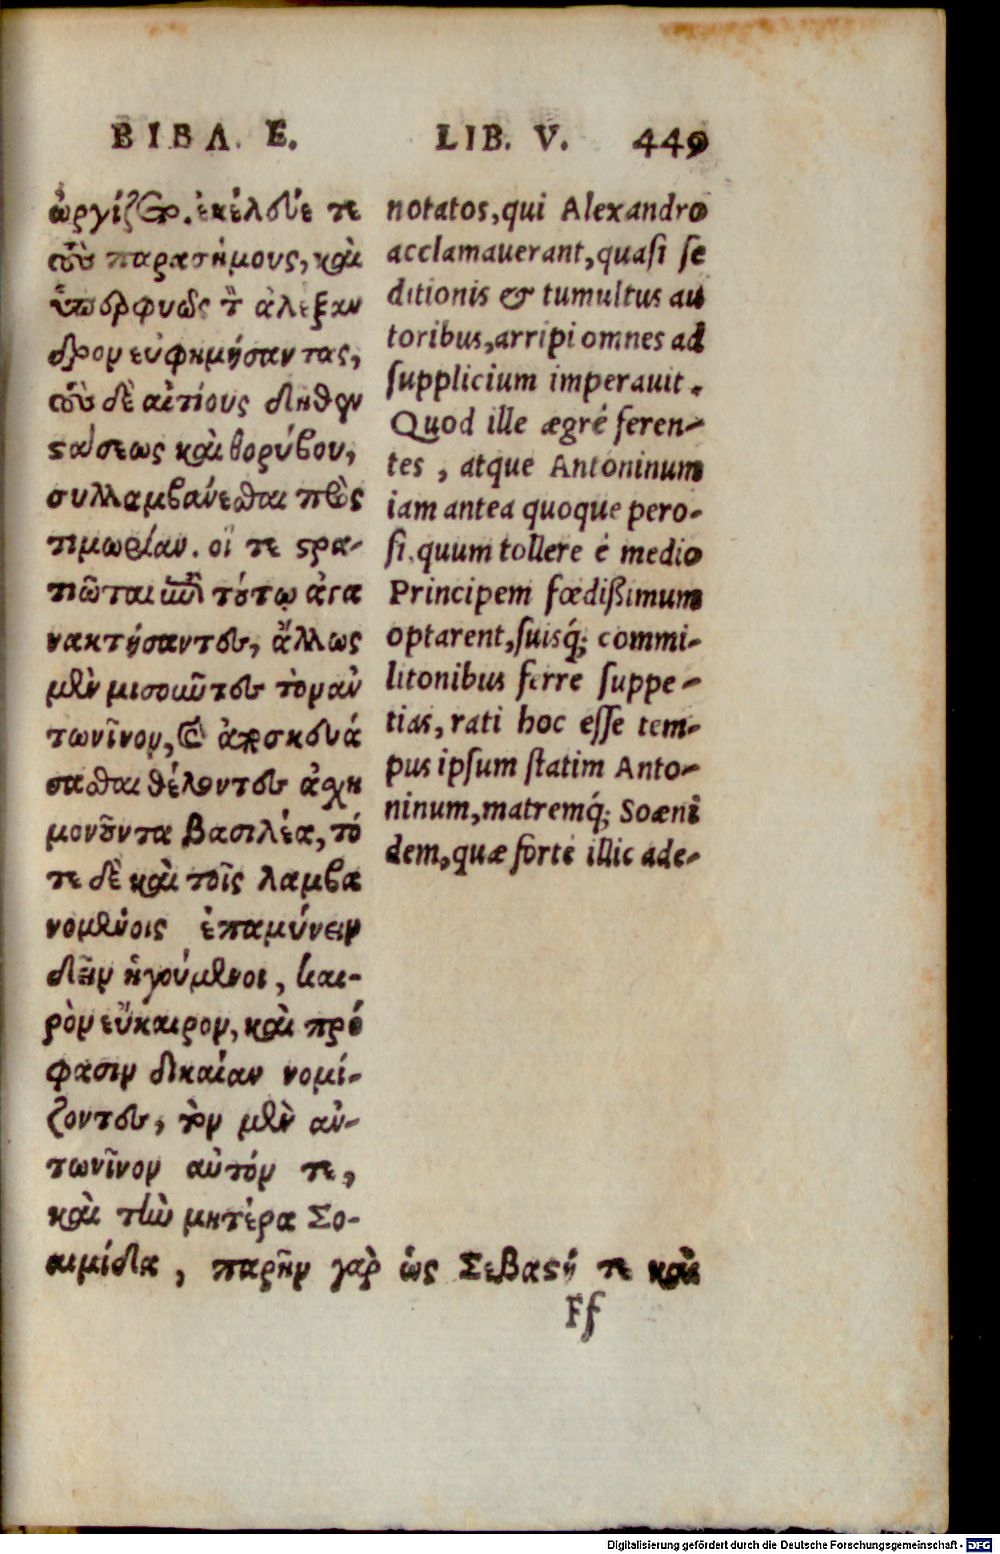 ΒΙΒΛ. Ε.
LIB. V. 449
ὠργίζετο. ἐκέλευέ τε
τοὺς παρασήμους, καὶ
ὑπερφυῶς τὸν ἀλέξαν
δρον εὐφημήσαντας,
τοὺς δὲ αἰτίους δῆθεν
στάσεως καὶ θορύβου,
συλλαμβάνεσθαι πρὸς
τιμωρίαν. οἵ τε στρα-
τιῶται ἐπὶ τούτῳ ἀγα
νακτήσαντες, ἄλλως
μὲν μισοῦντες τὸν αὐ
τωνῖνον, καὶ ἀποσκευά
σασθαι θέλοντες ἀσχη
μονοῦντα βασιλέα, τό
τε δὲ καὶ τοῖς λαμβα
νομένοις ἐπαμύνειν
δεῖν ἡγούμενοι, και-
ρὸν εὔκαιρον, καὶ πρό
φασιν δικαίαν νομί-
ζοντες, τὸν μὲν αὐ-
τωνῖνον αὐτόν τε,
καὶ τὴν μητέρα Σο-
αιμίδα, παρῆν γὰρ ὡς Σεβαστή τε καὶ
notatos, qui Alexandro
acclamauerant, quasi se
ditionis & tumultus au
toribus, arripi omnes ad
supplicium imperauit.
Quod ille ægré feren-
tes, atque Antoninum
iam antea quoque pero-
si, quum tollere é medio
Principem fœdißimum
optarent, suisq́; commi-
litonibus ferre suppe-
tias, rati hoc esse tem-
pus ipsum statim Anto-
ninum, matremq́; Soæni
dem, quæ forte illic ade-
Ff
Digitalisierung gefördert durch die Deutsche Forschungsgemeinschaft - DFG